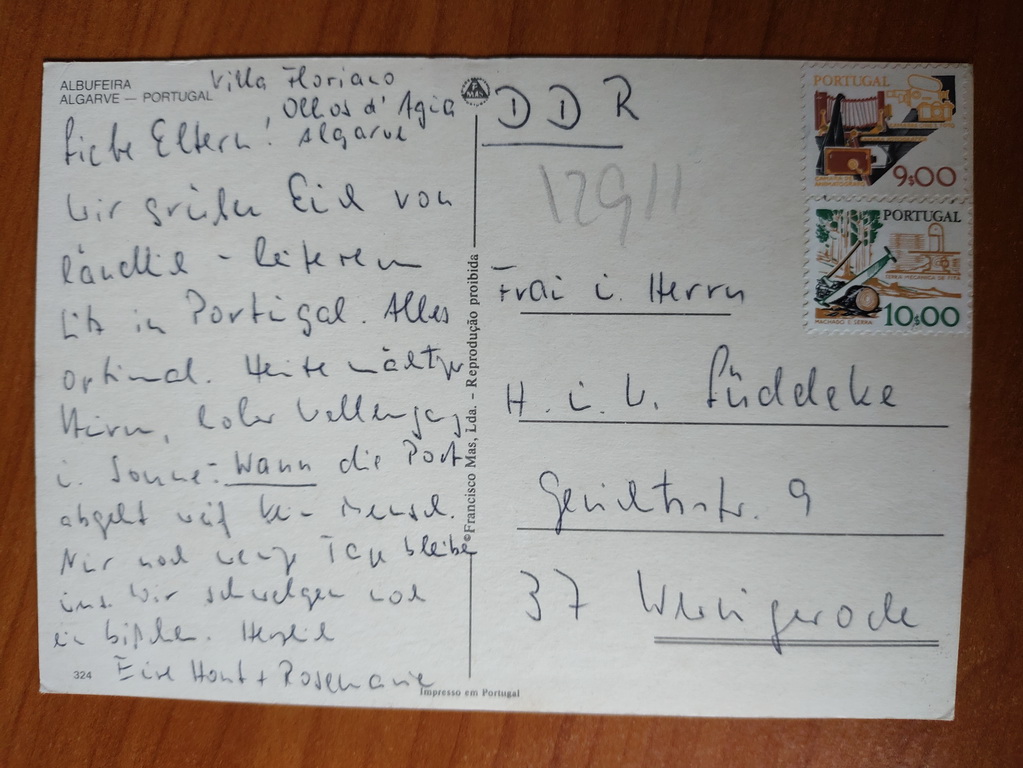 ALBUFEIRA
ALGARVE — PORTUGAL
Villa Floriano
Olhos d' Agua
Algarve
Liebe Eltern!
Wir grüßen Euch von
ländlich -
in Portugal. Alles
optimal. Heute mächtiger
Sturm, hoher Wellengang
u. Sonne. Wann die Post
abgeht weiß kein Mensch.
Nur noch wenige Tage bleiben
uns. Wir schwelgen noch
ein bißchen. Herzlich
Eure Horst + Rosemarie
324
©Francisco Mas, Lda. - Reprodução proibida
Impresso em Portugal
DDR
12911
Frau u. Herrn
H. u. L. Lüddeke
Gerichtsstr. 9
37 Wernigerode
PORTUGAL
9$00
PORTUGAL
MACHADO E SERRA
10$00